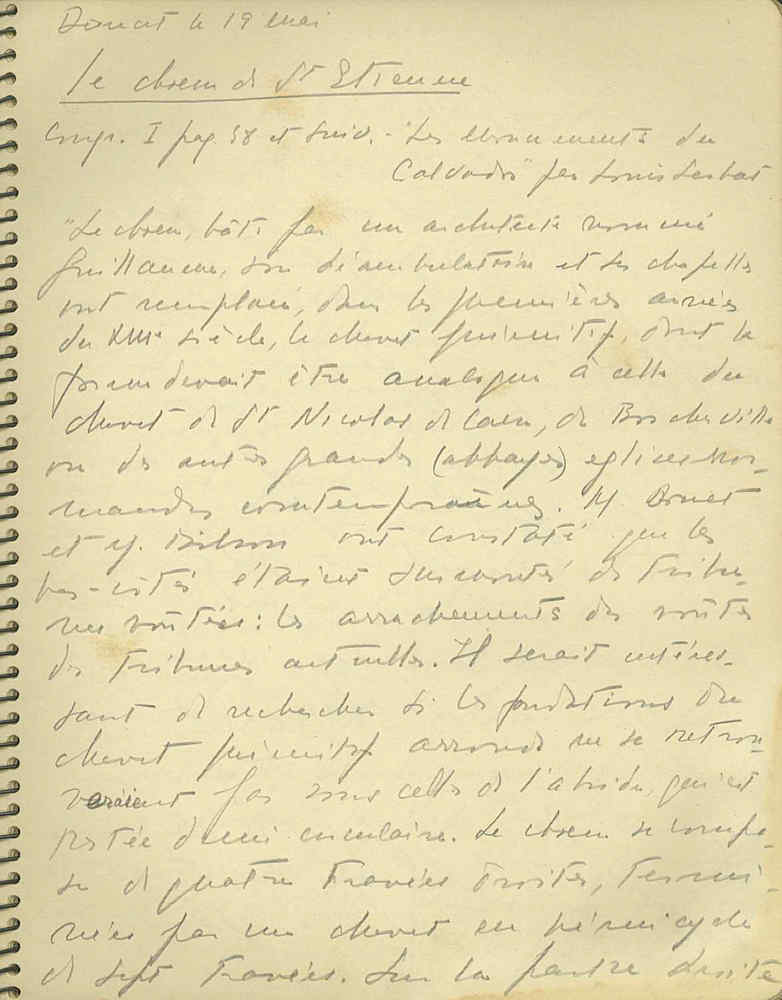 Donat le 19 mai
Le choeur de St Etienne
Congr. I pag. 58 et suiv. - "Les Monuments du
Calvados" par Louis Serbat
"Le choeur, bâti par un architecte nommé
Guillaume, son déambulatoire et ses chapelles
ont remplacé, dans les premières années
du XIIIe siècle, le chevet primitif, dont la
forme devait être analogue à celle du
chevet de St Nicolas de Caen, de Boscherville
ou des autres grandes (abbayes) eglises nor-
mandes contemporaines. M. Bouet
et M. Bilson ont constaté que les
bas-cotés étaient surmontés de tribu-
nes voûtées: les arrachements des voûtes
des tribunes actuelles. Il serait intéres-
sant de rechercher si les fondations du
chevet primitif arrondi ne se retrou-
veraient pas sous celles de l'abside, qui est
restée demi circulaire. Le choeur se compo-
se de quatre travées droites, termi-
nées par un chevet en hémicycle
de sept travées. Sur la partie droite